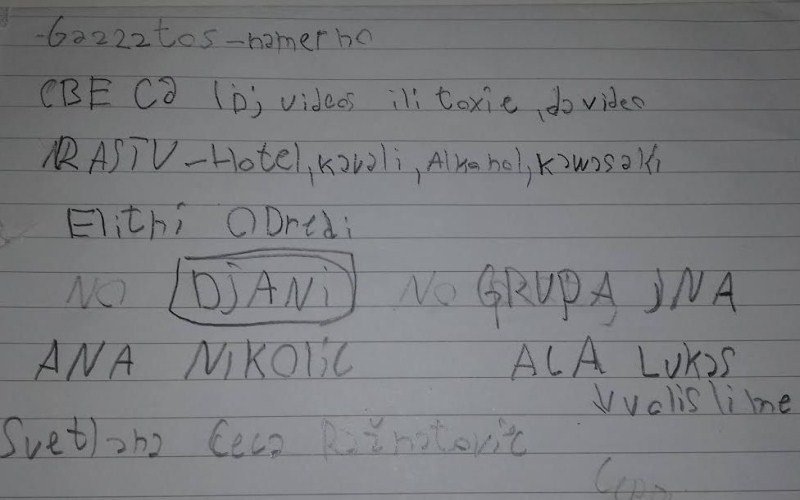 -Gazzztos-namerno
CBE Ca (Dj videos ili toxic, da video
RASTU-Hotel, Kavali, Alkohol, Kawasaki
Elitni ODredi
NO DjANi NO GRUPA JNA
ANA NIKOLIC ACA LUKAS
Vvolis li me
Svetlana Ceca Ražnatovic
Ceca